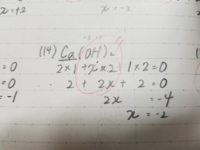 x=+2
x=-2
(14) Ca(OH)₂
=0
2×1+x×2 1×2=0
=0
2+2x+2=0
=-1
2x =-4
x=-2